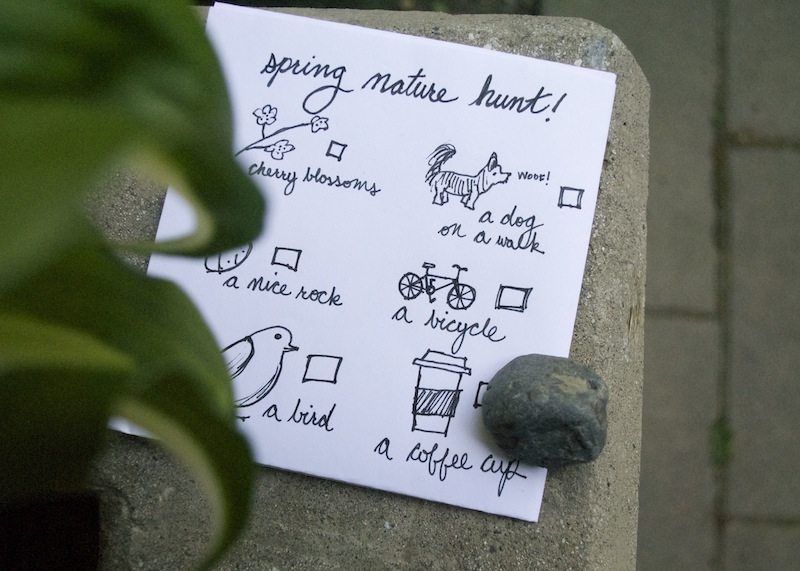 spring nature hunt!
cherry blossoms
WOOF!
a dog
on a walk
a nice rock
a bicycle
a bird
a coffee cup